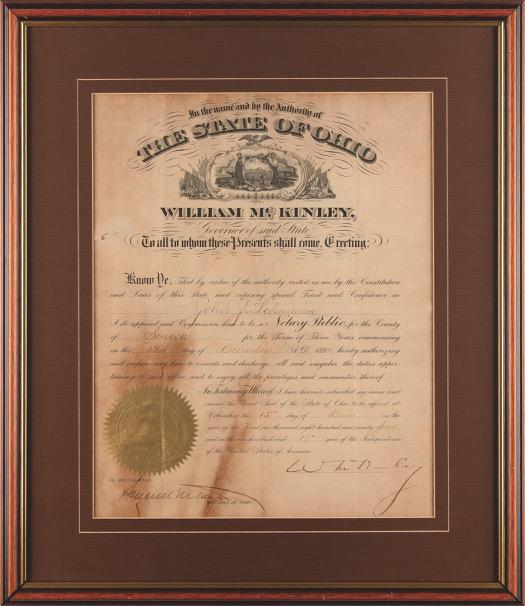 In the name and by the Authority of
THE STATE OF OHIO
WILLIAM Mc KINLEY,
Governor of said State
To all to whom these Presents shall come, Greeting:
Know Ye, That by virtue of the authority vested in me by the Constitution
and Laws of this State and reposing special Trust and Confidence in
John J. Lehmann
I do appoint and Commission him to be a Notary Public, for the County
of Seneca for the Term of Three Years commencing
on the 15th day of December A.D. 189 hereby authorizing
and empowering him to execute and discharge, all and singular, the duties apper
taining to said office, and to enjoy all the privileges and immunities thereof.
In Testimony Whereof, I have hereunto subscribed my name and
caused the Great Seal of the State of Ohio to be affixed at
Columbus, the 15th day of Dec in the
year of our Lord one thousand eight hundred and ninety four
and in the one hundred and 19th year of the Independence
of the United States of America
Wm McKinley
By the Governor
Samuel M Taylor
Secretary of State